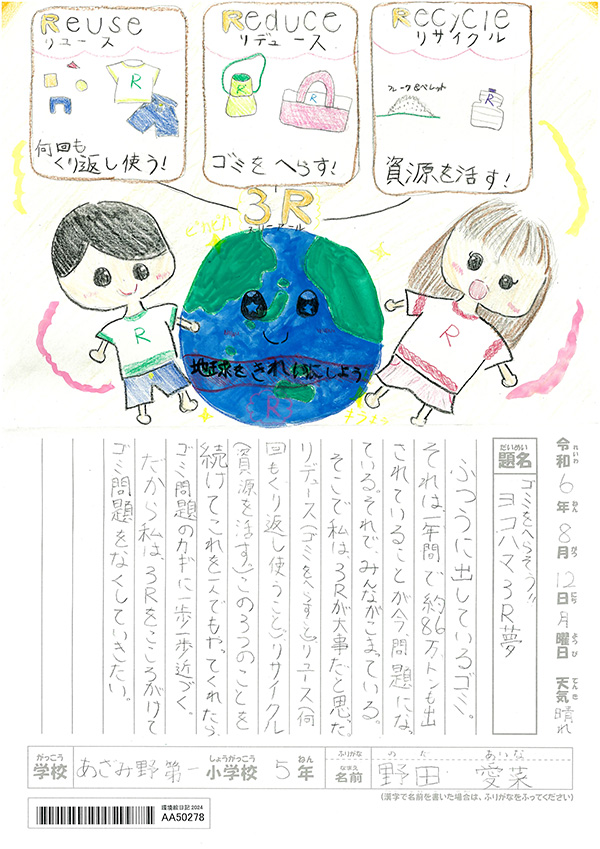 Reuse
リユース
R
何回も
くり返し使う!
Reduce
リデュース
R
R
ゴミを へらす!
Recycle
リサイクル
フレーク&ペレット
R
資源を活す!
3R
スリーアール
R
R
地球をきれいにしよう
R
令和6年8月12日月曜日 天気 晴れ
れいわ ねん がつ にち ようび てんき
だいめい
題名
ゴミをへらそう!!
ヨコハマ3R夢
ふつうに出しているゴミ。
それは一年間で約86万トンも出
されていることが今、問題になっ
ている。それで、みんながこまっている。
そこで私は、3Rが大事だと思た。
リデュース(ゴミをへらすと)リユース(何
回もくり返し使うこと)リサイクル
(資源を活す)この3つのことを
続けてこれを一人でもやってくれたら
ゴミ問題のカギに一歩一歩近づく。
だから私は、3Rをこころがけて
ゴミ問題をなくしていきたい。
がっこう しょうがっこう ねん
学校 あざみ野第一小学校 5年
ふりがな のた あいな
なまえ
名前 野田 愛菜
(漢字で名前を書いた場合は、ふりがなをふってください)
環境絵日記2024
AA50278